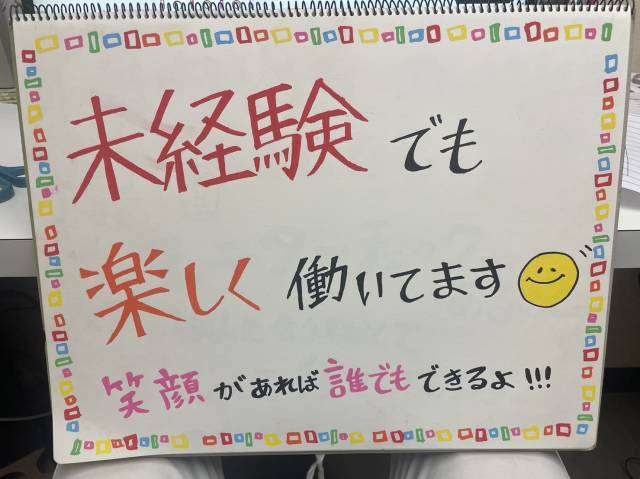 未経験でも
楽しく働いてます
笑顔があれば誰でもできるよ!!!